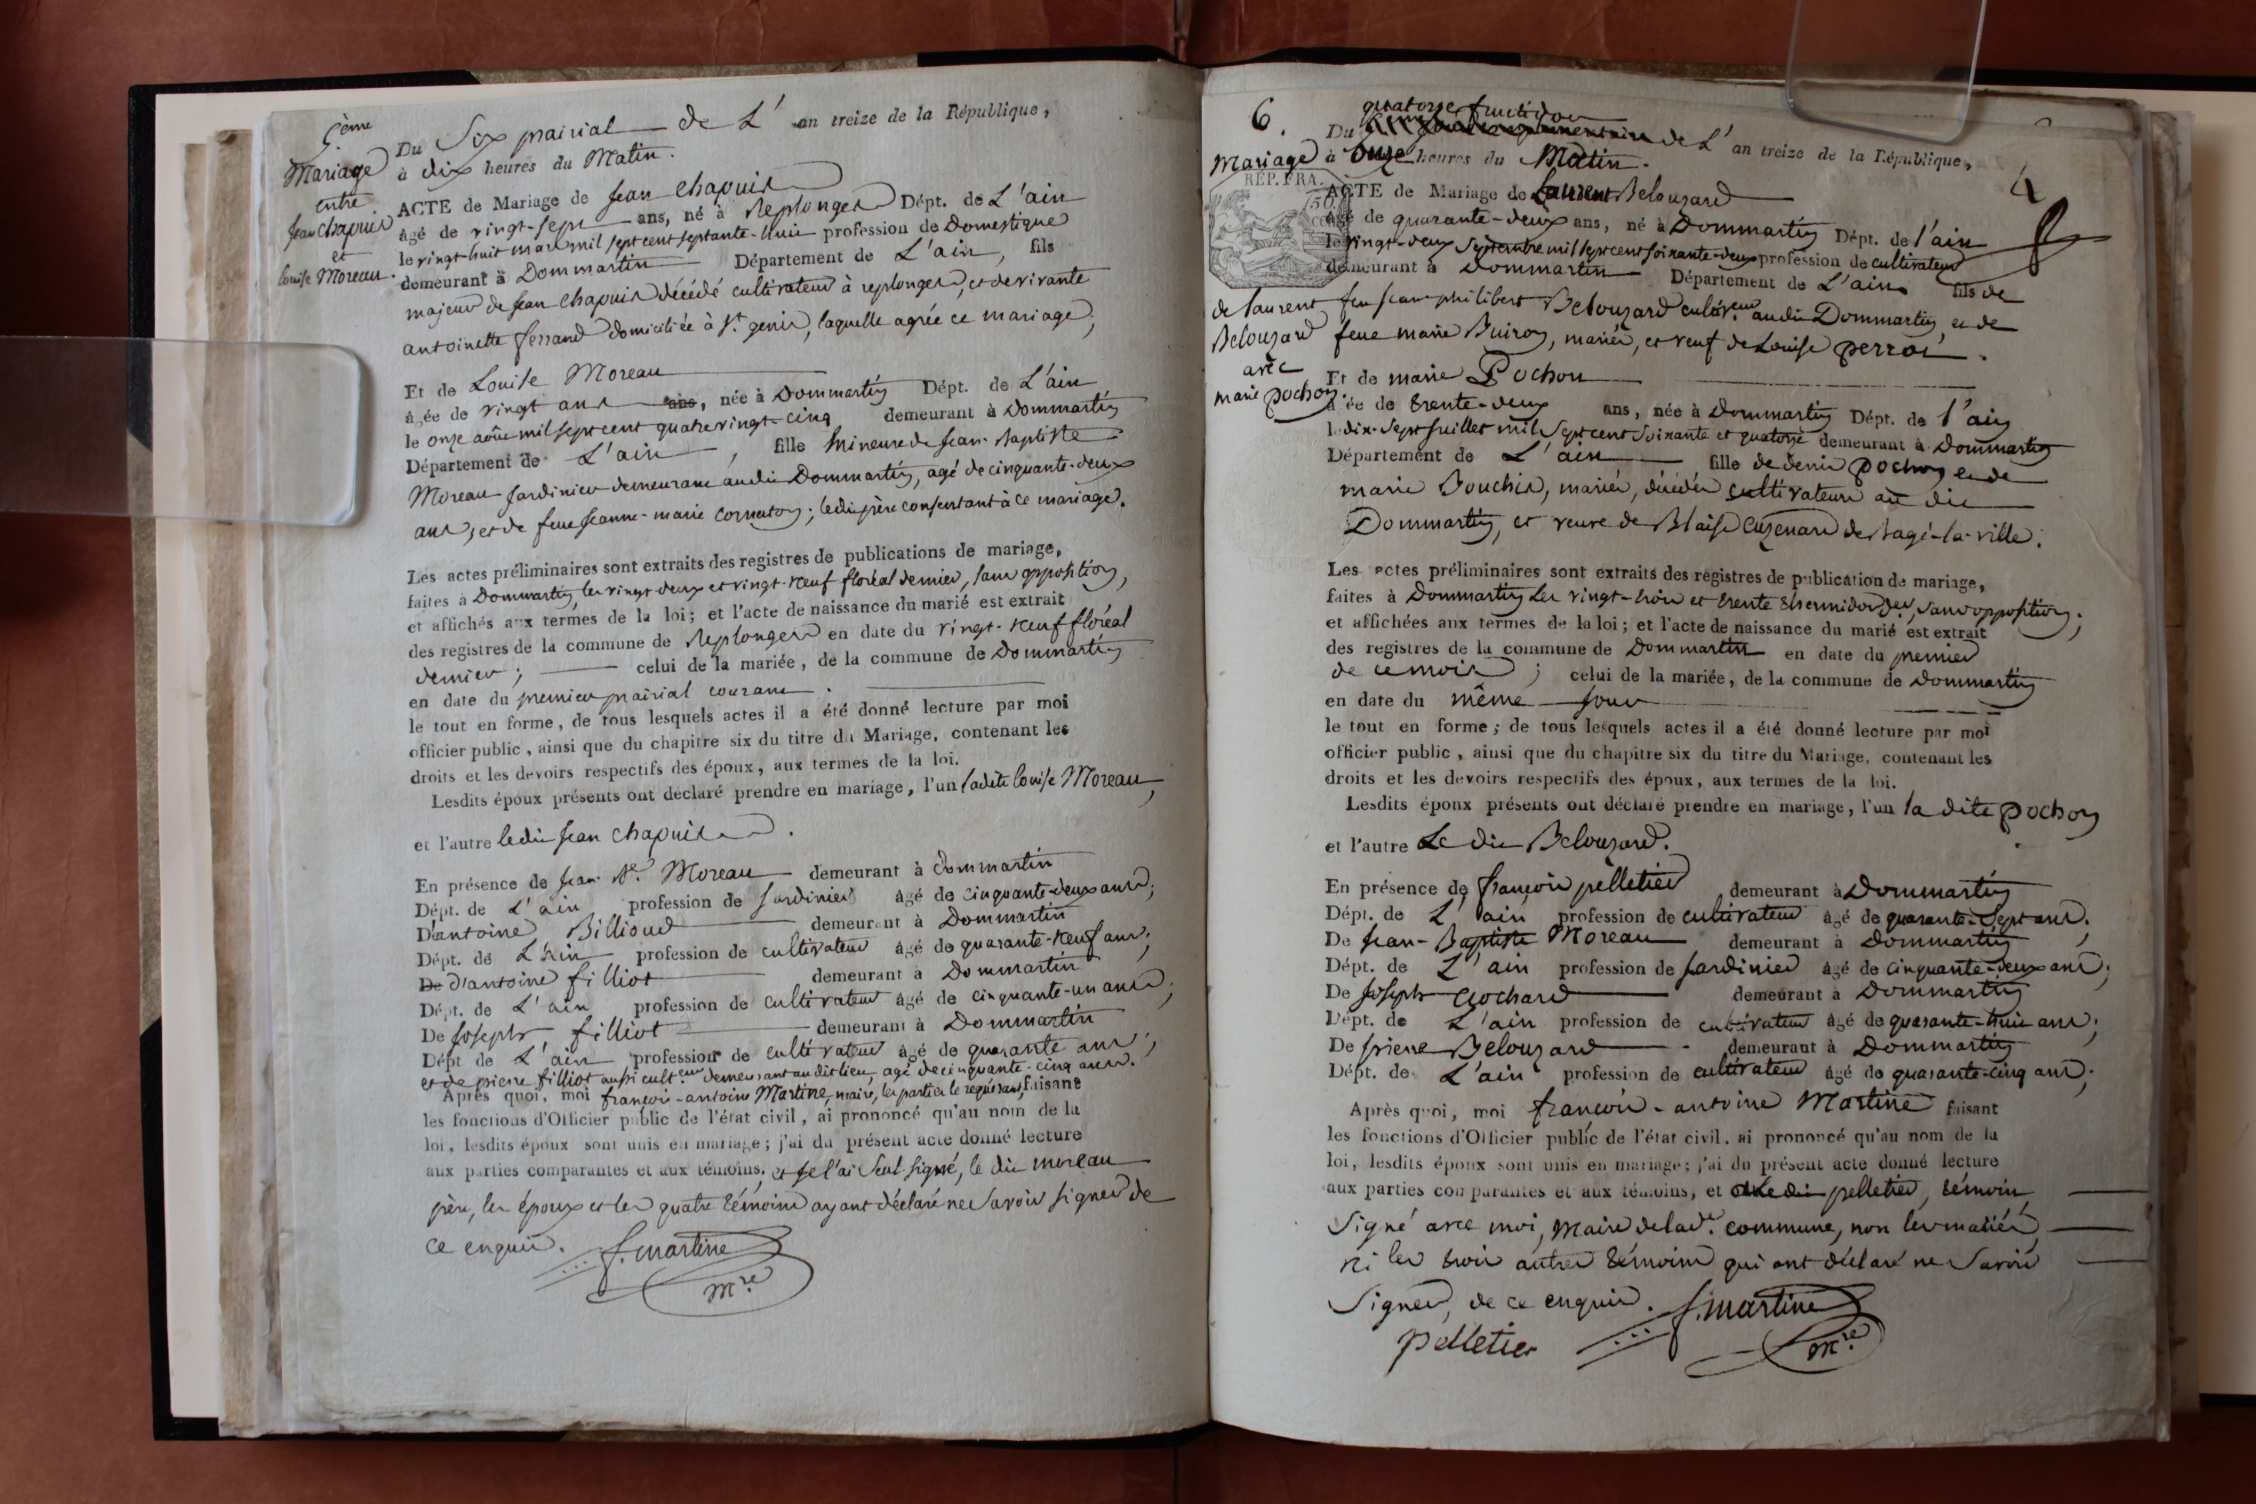 5.eme
Mariage
entre
Jean Chapuis
et
Louise Moreau.
Du Six prairial de L'an treize de la République,
à dix heures du Matin.
ACTE de Mariage de Jean Chapuis
âgé de vingt-sept ans, né à Replonges Dépt. de L'ain
le vingt-huit mars mil sept cent septante-huit profession de Domestique
demeurant à Dommartin Département de L'ain, fils
majeur de Jean Chapuis décédé cultivateur à replonges, et de vivante
antoinette ferrand domiciliée à St. genis, laquelle agrée ce mariage,
Et de Louise Moreau
âgée de vingt ans ans, née à Dommartin Dépt. de L'ain
le onze août mil sept cent quatre vingt-cinq demeurant à Dommartin
Département de L'ain, fille Mineure de Jean-Baptiste
Moreau Jardinier demeurant audit Dommartin, agé de cinquante-deux
ans, et de feue Jeanne-marie Cornaton; ledit père consentant à ce mariage.
Les actes préliminaires sont extraits des registres de publications de mariage,
faites à Dommartin les vingt-deux et vingt-neuf floréal dernier, sans opposition,
et affichés aux termes de la loi; et l'acte de naissance du marié est extrait
des registres de la commune de Replonges en date du vingt-neuf floréal
dernier; celui de la mariée, de la commune de Dommartin
en date du premier prairial courant.
le tout en forme, de tous lesquels actes il a été donné lecture par moi
officier public, ainsi que du chapitre six du titre du Mariage, contenant les
droits et les devoirs respectifs des époux, aux termes de la loi.
Lesdits époux présents ont déclaré prendre en mariage, l'un ladite Louise Moreau,
et l'autre ledit Jean Chapuis.
En présence de Jean Bte. Moreau demeurant à Dommartin
Dépt. de L'ain profession de Jardinier âgé de cinquante-deux ans;
D'antoine Billioud demeurant à Dommartin
Dépt. de L'Ain profession de cultivateur âgé de quarante-neuf ans;
De d'antoine filliot demeurant à Dommartin
Dépt. de L'ain profession de cultivateur âgé de cinquante-un ans;
De Joseph filliot demeurant à Dommartin
Dépt. de L'ain profession de cultivateur âgé de quarante ans;
et de pierre filliot aussi cult.eur demeurant audit lieu, agé de cinquante-cinq ans.
Après quoi, moi françois-antoine Martine, maire, les parties le requérant, faisant
les fonctions d'Officier public de l'état civil, ai prononcé qu'au nom de la
loi, lesdits époux sont unis en mariage; j'ai du présent acte donné lecture
aux parties comparantes et aux témoins, et je l'ai seul signé, le dit moreau
père, les époux et les quatre témoins ayant déclaré ne savoir signer de
ce enquis. f. martine
mre.
6.
Mariage
de laurent
Belouzard
avec
marie pochon.
4
RÉP. FRA.
quatorze fructidor
Du de L'an treize de la République,
à Onze heures du Matin.
ACTE de Mariage de Laurent Belouzard
âgé de quarante-deux ans, né à Dommartin Dépt. de l'ain
le vingt-deux Septembre mil sept cent soixante-deux profession de cultivateur
demeurant à Dommartin Département de L'ain fils de
feu Jean philibert Belouzard cultiv.eur audit Dommartin, et de
feue marie Buiron, mariés, et veuf de Louise perrot.
Et de marie Pochon
âgée de trente-deux ans, née à Dommartin Dépt. de l'ain
le dix-sept Juillet mil sept cent soixante et quatorze demeurant à Dommartin
Département de L'ain fille de denis pochon et de
marie Bouchis, mariés, décédés cultivateurs au dit
Dommartin, et veuve de Blaise Cuzenard de Bagé-la-ville.
Les actes préliminaires sont extraits des registres de publication de mariage,
faites à Dommartin Les vingt-trois et trente thermidor der, sans opposition;
et affichées aux termes de la loi; et l'acte de naissance du marié est extrait
des registres de la commune de Dommartin en date du premier
de ce mois; celui de la mariée, de la commune de Dommartin
en date du même jour
le tout en forme; de tous lesquels actes il a été donné lecture par moi
officier public, ainsi que du chapitre six du titre du Mariage, contenant les
droits et les devoirs respectifs des époux, aux termes de la loi.
Lesdits époux présents ont déclaré prendre en mariage, l'un la dite pochon
et l'autre Le dit Belouzard.
En présence de françois pelletier demeurant à Dommartin
Dépt. de L'ain profession de cultivateur âgé de quarante-sept ans;
De Jean-Baptiste Moreau demeurant à Dommartin
Dépt. de L'ain profession de Jardinier âgé de cinquante-deux ans;
De Joseph Cochard demeurant à Dommartin
Dépt. de L'ain profession de cultivateur âgé de quarante-huit ans;
De pierre Belouzard demeurant à Dommartin
Dépt. de L'ain profession de cultivateur âgé de quarante-cinq ans;
Après quoi, moi françois-antoine Martine faisant
les fonctions d'Officier public de l'état civil, ai prononcé qu'au nom de la
loi, lesdits époux sont unis en mariage; j'ai du présent acte donné lecture
aux parties comparantes et aux témoins, et le dit pelletier, témoin
Signé avec moi, Maire de lad.e commune, non les mariés
ni les trois autres témoins qui ont déclaré ne savoir
Signer, de ce enquis. f. martine
pelletier mre.